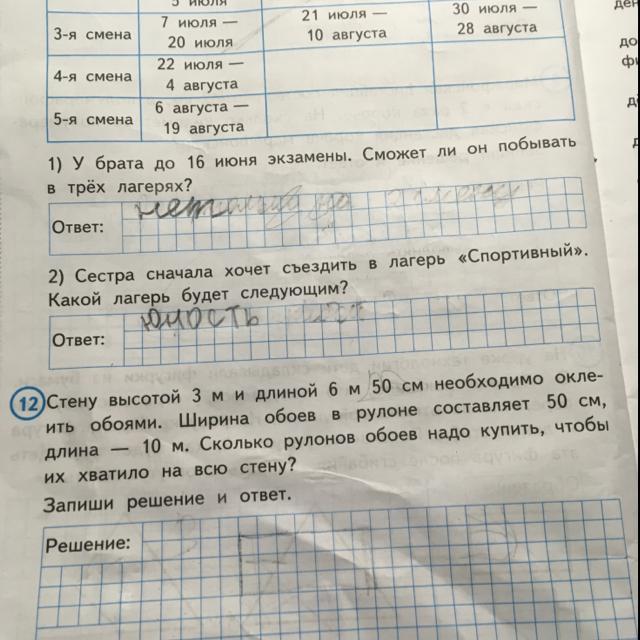 5 июля
3-я смена 7 июля — 20 июля 21 июля — 10 августа 30 июля — 28 августа
4-я смена 22 июля — 4 августа
5-я смена 6 августа — 19 августа
1) У брата до 16 июня экзамены. Сможет ли он побывать
в трёх лагерях?
Ответ: нет
2) Сестра сначала хочет съездить в лагерь «Спортивный».
Какой лагерь будет следующим?
Ответ: юность
12 Стену высотой 3 м и длиной 6 м 50 см необходимо окле-
ить обоями. Ширина обоев в рулоне составляет 50 см,
длина — 10 м. Сколько рулонов обоев надо купить, чтобы
их хватило на всю стену?
Запиши решение и ответ.
Решение: